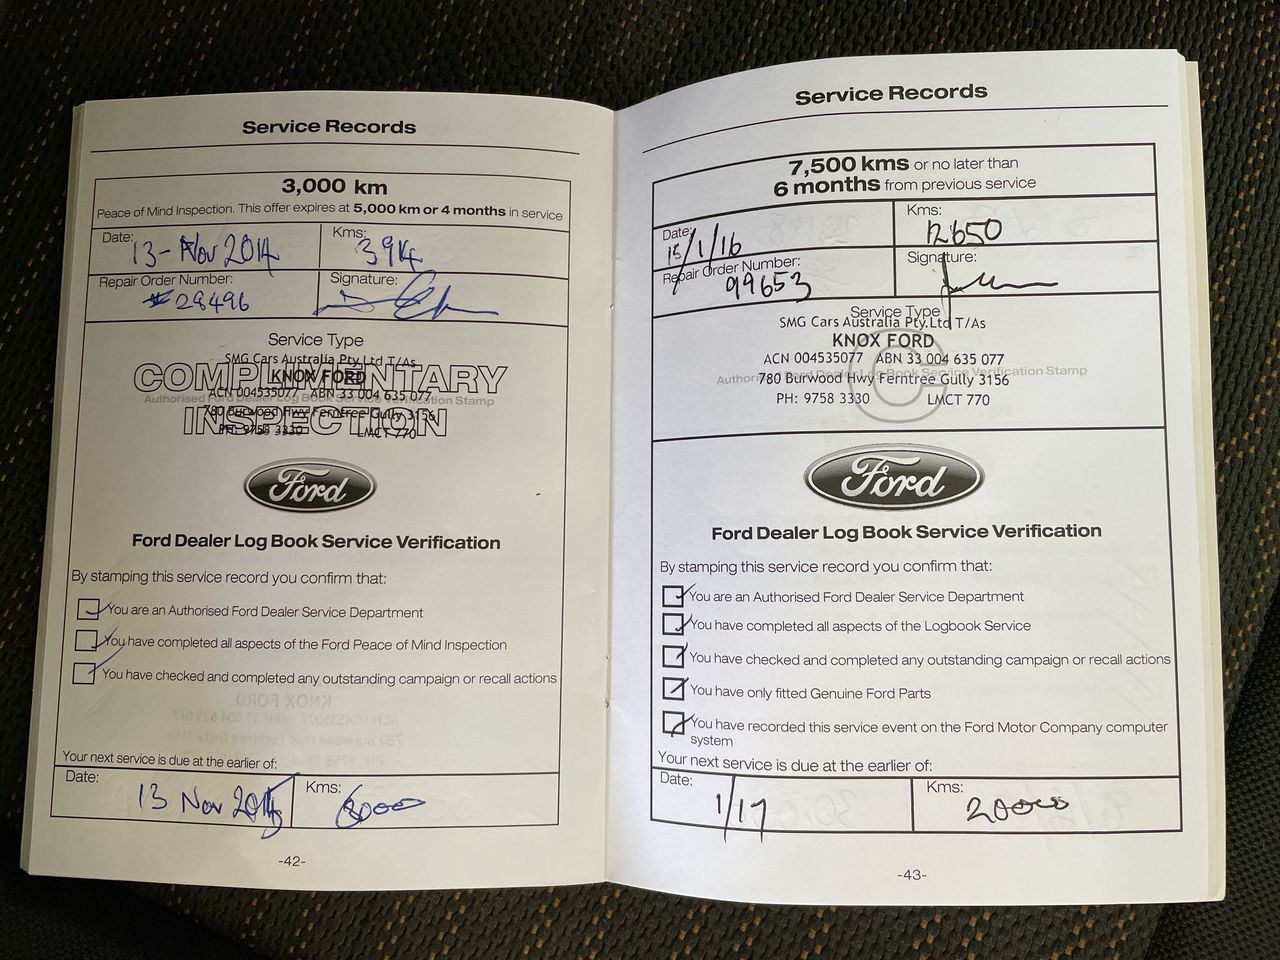 Service Records
3,000 km
Peace of Mind Inspection. This offer expires at 5,000 km or 4 months in service
Date: 13-Nov 2014 Kms: 394
Repair Order Number: #28496 Signature:
Service Type
COMPLIMENTARY INSPECTION
SMG Cars Australia Pty.Ltd T/As
KNOX FORD
ACN 004535077 ABN 33 004 635 077
Authorised Ford Dealer Log Book Service Verification Stamp
780 Burwood Hwy Ferntree Gully 3156
PH: 9758 3330 LMCT 770
Ford
Ford Dealer Log Book Service Verification
By stamping this service record you confirm that:
You are an Authorised Ford Dealer Service Department
You have completed all aspects of the Ford Peace of Mind Inspection
You have checked and completed any outstanding campaign or recall actions
Your next service is due at the earlier of:
Date: 13 Nov 2015 Kms:
-42-
Service Records
7,500 kms or no later than
6 months from previous service
Date: 15/1/16 Kms: 12650
Repair Order Number: 99653 Signature:
Service Type
SMG Cars Australia Pty.Ltd T/As
KNOX FORD
ACN 004535077 ABN 33 004 635 077
Authorised Ford Dealer Log Book Service Verification Stamp
780 Burwood Hwy Ferntree Gully 3156
PH: 9758 3330 LMCT 770
Ford
Ford Dealer Log Book Service Verification
By stamping this service record you confirm that:
You are an Authorised Ford Dealer Service Department
You have completed all aspects of the Logbook Service
You have checked and completed any outstanding campaign or recall actions
You have only fitted Genuine Ford Parts
You have recorded this service event on the Ford Motor Company computer
system
Your next service is due at the earlier of:
Date: 1/17 Kms: 20000
-43-